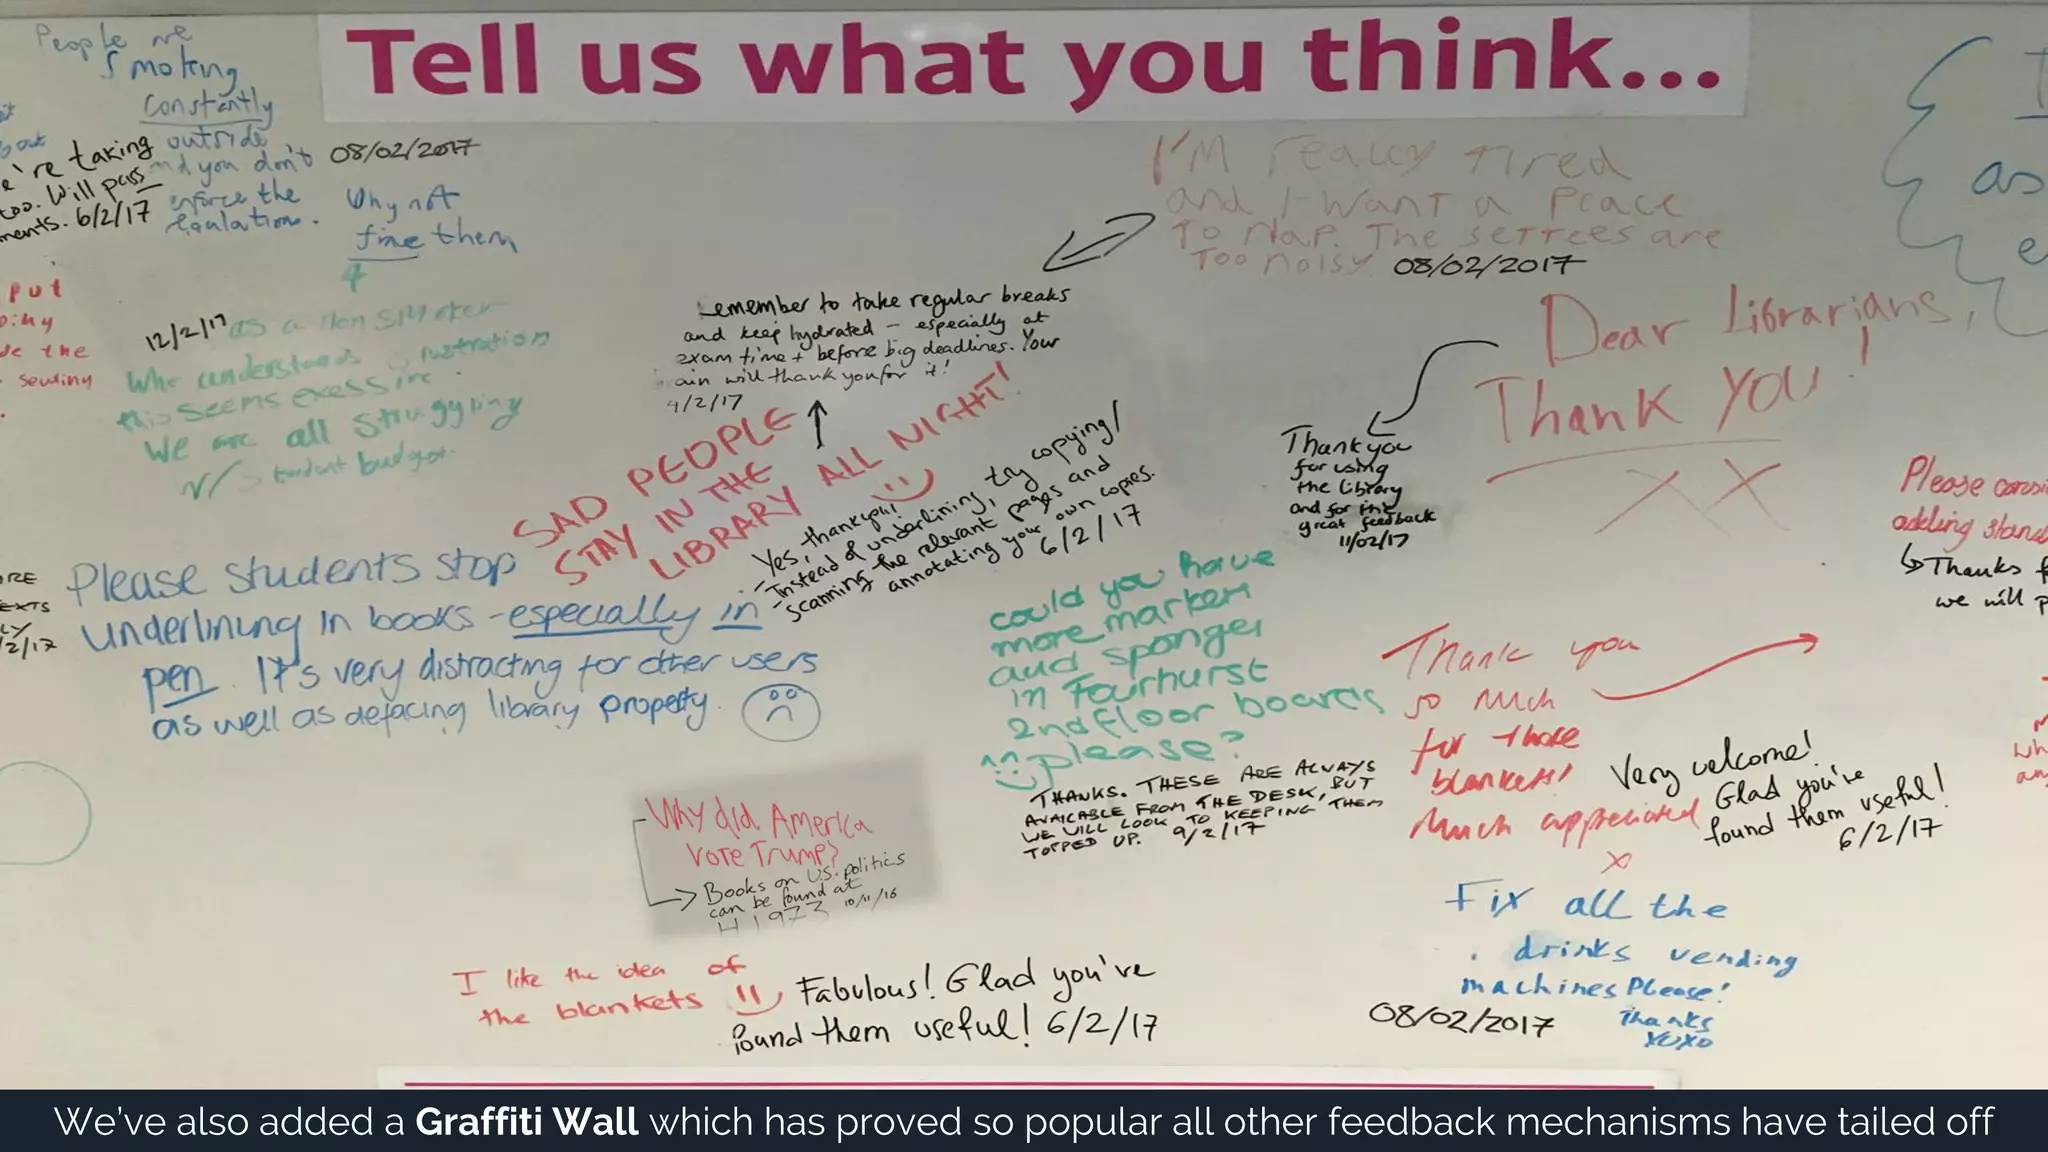 Tell us what you think...
People are
smoking
constantly
outside
and you don't
enforce the
regulations.
08/02/2017
Why not
fine them
taking
too. Will pass
6/2/17
put
the
12/2/17 as a non smoker
who understands frustration
this seems exessive.
We are all struggling
w/ student budget.
I'M really Tired
and I want a Peace
To Nap. The settees are
Too noisy. 08/02/2017
Remember to take regular breaks
and keep hydrated - especially at
exam time + before big deadlines. Your
brain will thank you for it!
9/2/17
SAD PEOPLE
STAY IN THE
LIBRARY ALL NIGHT!
Yes, thank you!
Instead of underlining, try copying/
scanning the relevant pages and
annotating your own copies.
6/2/17
Dear Librarians,
Thank YOU!
XX
Thank you
for using
the library
and for the
great feedback
11/02/17
Please
adding
Thanks
we will
Please students stop
underlining in books - especially in
pen. It's very distracting for other users
as well as defacing library property.
could you have
more markers
and sponges
in Fairhurst
2nd floor boards
please?
THANKS. THESE ARE ALWAYS
AVAILABLE FROM THE DESK, BUT
WE WILL LOOK TO KEEPING THEM
TOPPED UP. 9/2/17
Thank you
so much
for those
blankets!
Much appreciated
x
Very welcome!
Glad you've
found them useful!
6/2/17
Why did America
vote Trump?
Books on U.S. politics
can be found at
H1973 10/11/16
I like the idea of
the blankets
Fabulous! Glad you've
found them useful! 6/2/17
Fix all the
drinks vending
machines Please!
08/02/2017
Thanks
XOXO
We've also added a Graffiti Wall which has proved so popular all other feedback mechanisms have tailed off